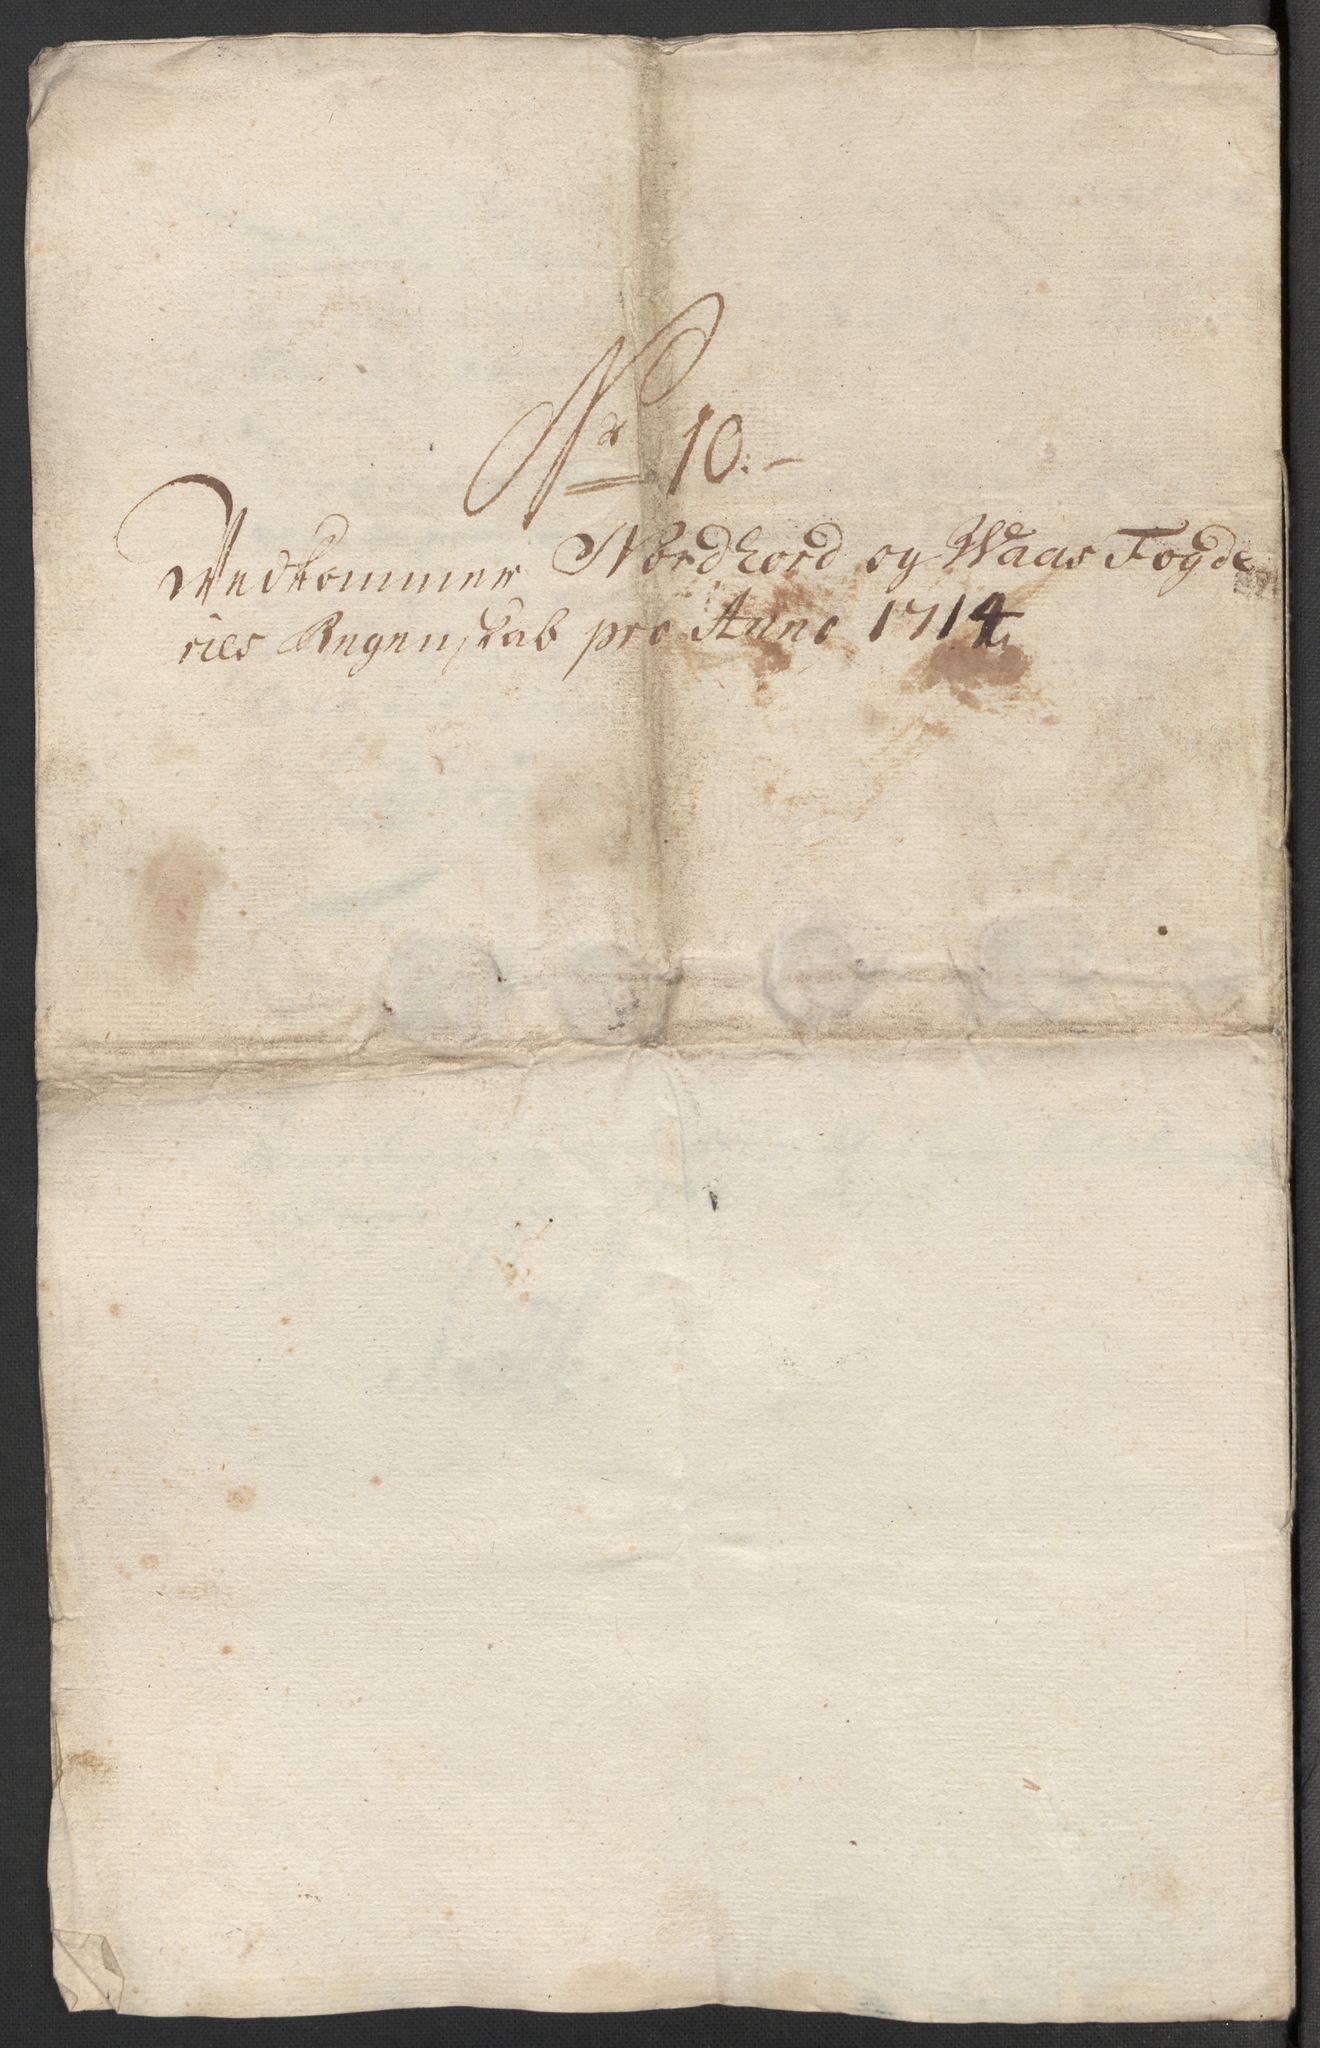 Nr 10:-
Vedkommer Nordhord og Waas Fogde
riles Regenskab pro Anno 1714